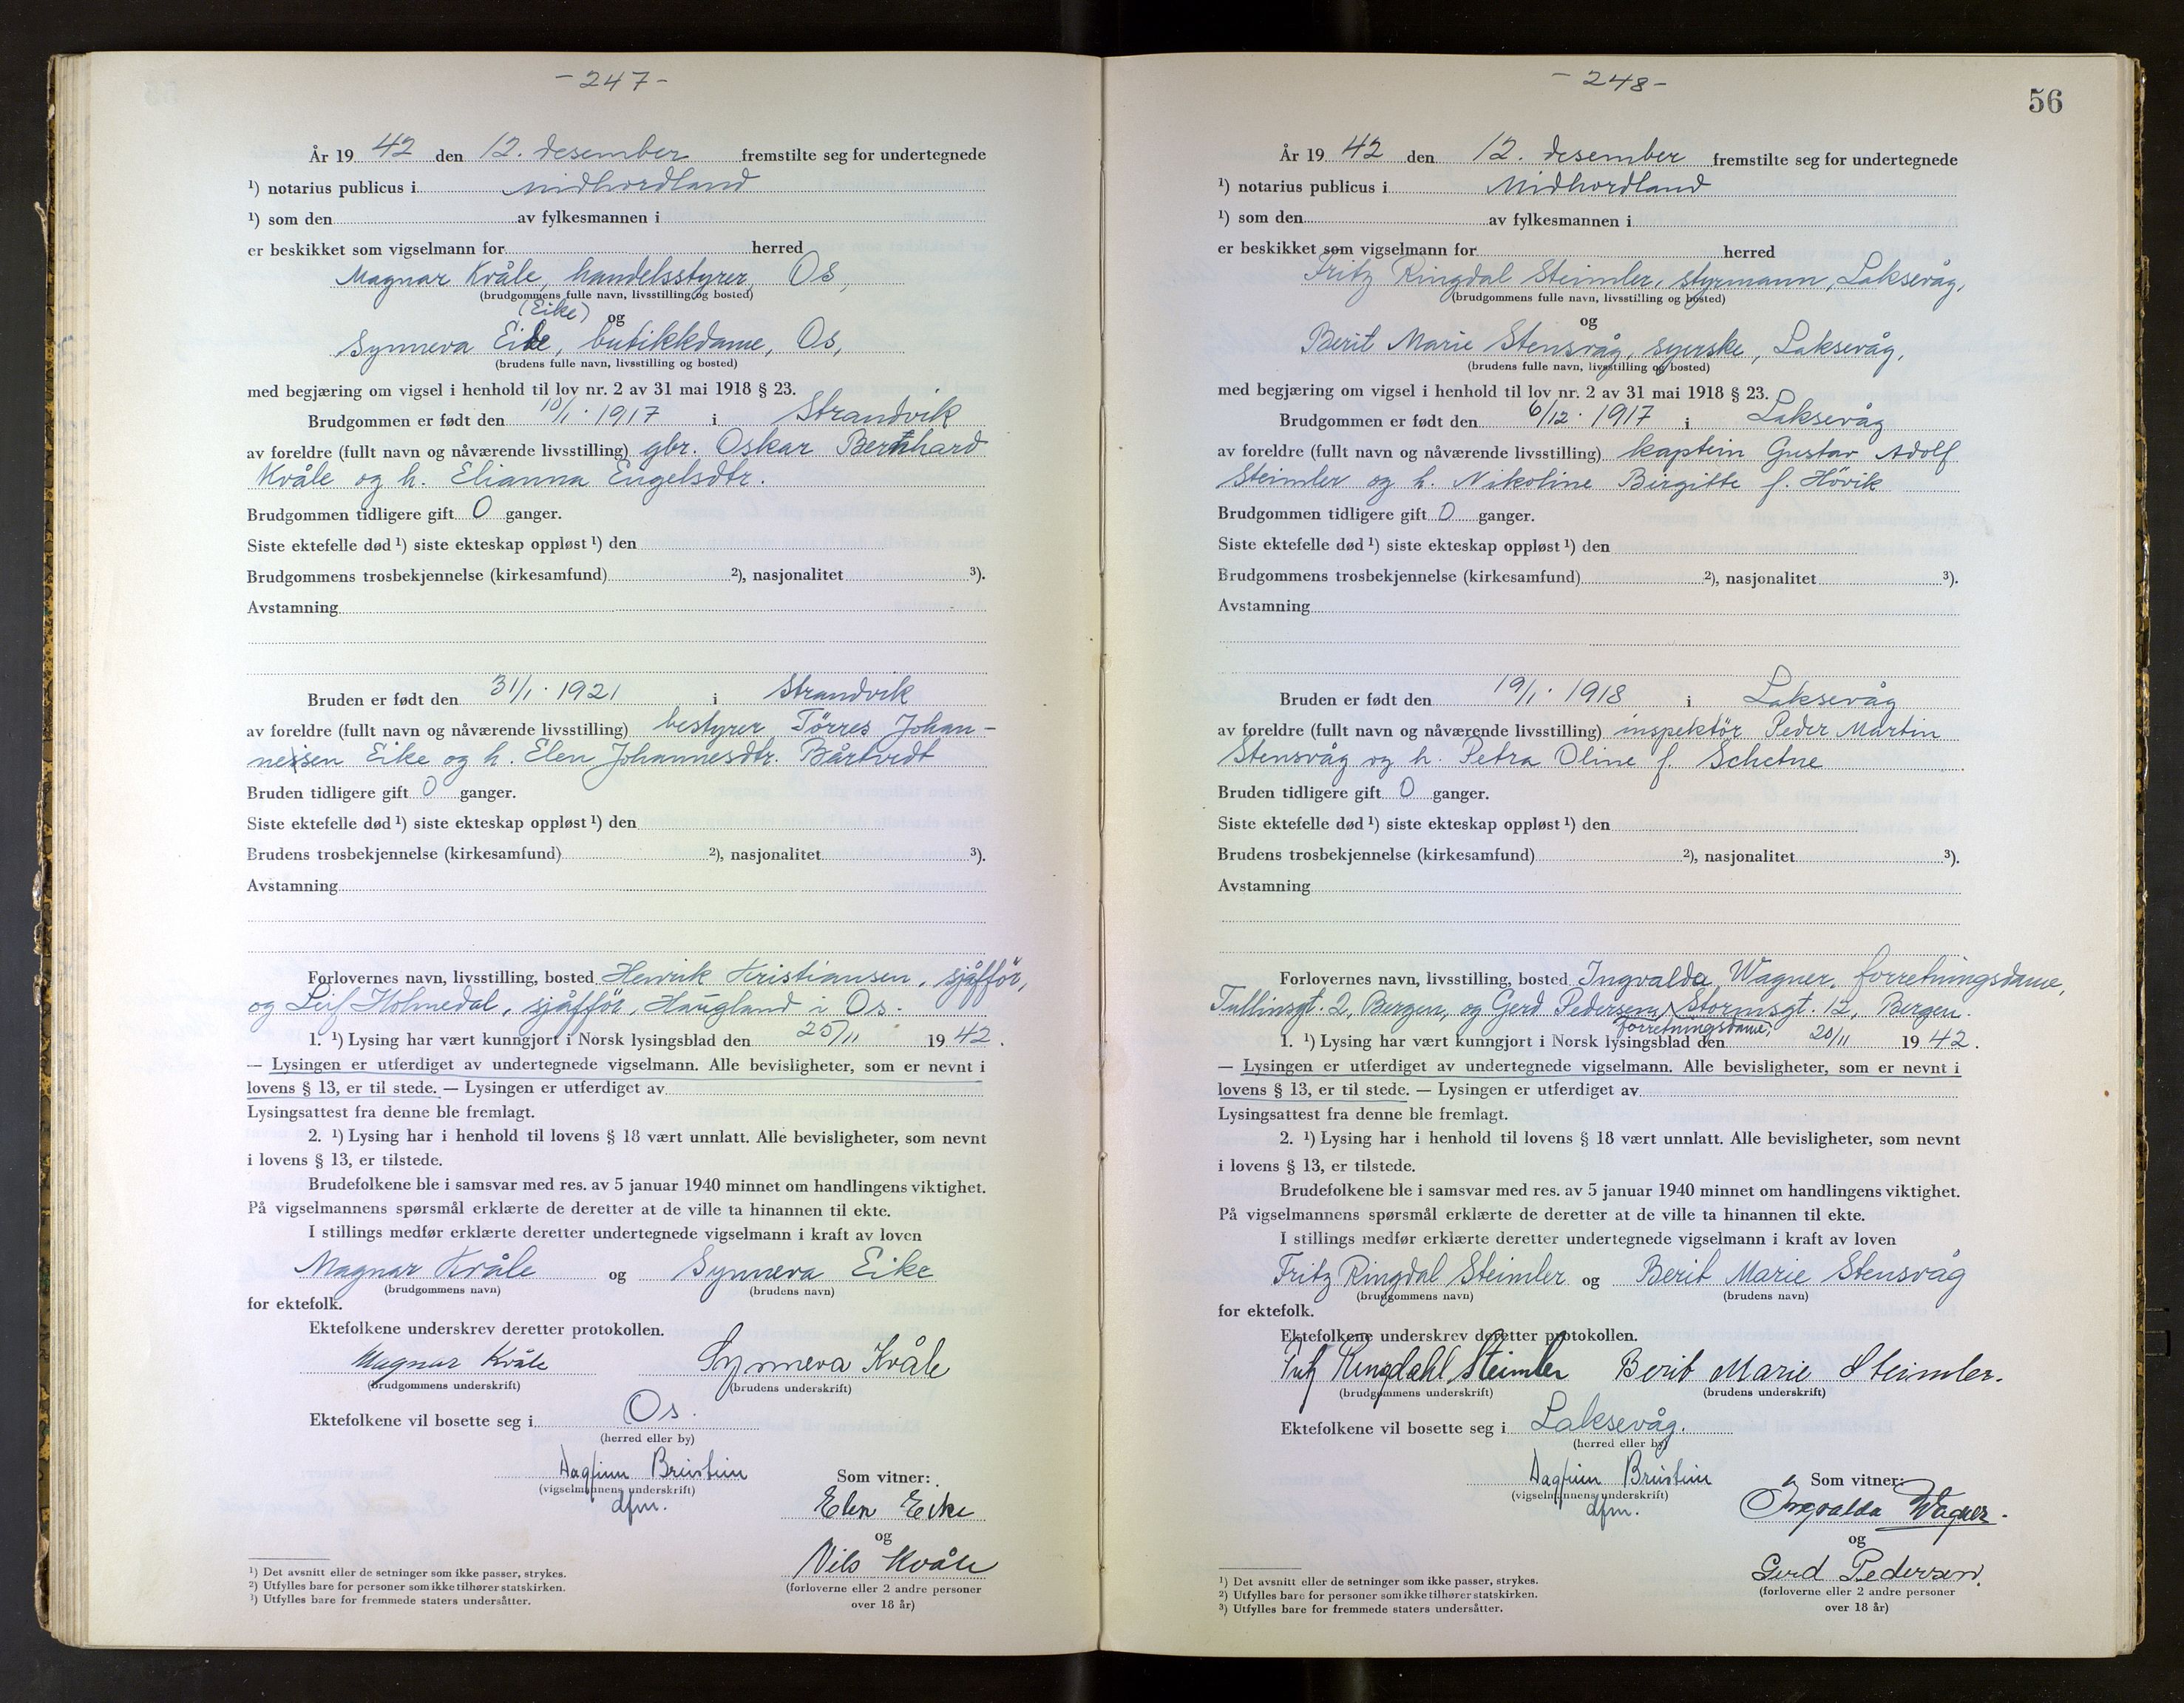 - 247 -
År 19 42 den 12. desember fremstilte seg for undertegnede
¹) notarius publicus i Midhordland
¹) som den av fylkesmannen i
er beskikket som vigselmann for herred
Magnar Kvåle, handelsstyrer, Os,
(brudgommens fulle navn, livsstilling og bosted)
(Eike)
og
Synneva Eide, butikkdame, Os,
(brudens fulle navn, livsstilling og bosted)
med begjæring om vigsel i henhold til lov nr. 2 av 31 mai 1918 § 23.
Brudgommen er født den 10/1. 1917 i Strandvik
av foreldre (fullt navn og nåværende livsstilling) gbr. Oskar Bernhard
Kvåle og h. Elianna Engelsdtr.
Brudgommen tidligere gift 0 ganger.
Siste ektefelle død ¹) siste ekteskap oppløst ¹) den
Brudgommens trosbekjennelse (kirkesamfund) ²), nasjonalitet ³).
Avstamning
Bruden er født den 31/1. 1921 i Strandvik
av foreldre (fullt navn og nåværende livsstilling) bestyrer Tørres Johan-
nessen Eike og h. Elen Johannesdtr. Bårtvedt
Bruden tidligere gift 0 ganger.
Siste ektefelle død ¹) siste ekteskap oppløst ¹) den
Brudens trosbekjennelse (kirkesamfund) ²), nasjonalitet ³).
Avstamning
Forlovernes navn, livsstilling, bosted Henrik Kristiansen, sjåfför,
og Leif Holmedal, sjåfför, Haugland i Os.
1. ¹) Lysing har vært kunngjort i Norsk lysingsblad den 25/11 19 42.
— Lysingen er utferdiget av undertegnede vigselmann. Alle bevisligheter, som er nevnt i
lovens § 13, er til stede. — Lysingen er utferdiget av
Lysingsattest fra denne ble fremlagt.
2. ¹) Lysing har i henhold til lovens § 18 vært unnlatt. Alle bevisligheter, som nevnt
i lovens § 13, er tilstede.
Brudefolkene ble i samsvar med res. av 5 januar 1940 minnet om handlingens viktighet.
På vigselmannens spørsmål erklærte de deretter at de ville ta hinannen til ekte.
I stillings medfør erklærte deretter undertegnede vigselmann i kraft av loven
Magnar Kvåle og Synneva Eike
(brudgommens navn) (brudens navn)
for ektefolk.
Ektefolkene underskrev deretter protokollen.
Magnar Kvåle Synneva Kvåle
(brudgommens underskrift) (brudens underskrift)
Ektefolkene vil bosette seg i Os.
(herred eller by)
Dagfinn Breistein
(vigselmannens underskrift)
dfm.
Som vitner:
Elen Eike
og
Nils Kvåle
(forloverne eller 2 andre personer
over 18 år)
¹) Det avsnitt eller de setninger som ikke passer, strykes.
²) Utfylles bare for personer som ikke tilhører statskirken.
³) Utfylles bare for fremmede staters undersåtter.
- 248 -
56
År 19 42 den 12. desember fremstilte seg for undertegnede
¹) notarius publicus i Midhordland
¹) som den av fylkesmannen i
er beskikket som vigselmann for herred
Fritz Ringdal Steimler, styrmann, Laksevåg,
(brudgommens fulle navn, livsstilling og bosted)
og
Berit Marie Stensvåg, syerske, Laksevåg,
(brudens fulle navn, livsstilling og bosted)
med begjæring om vigsel i henhold til lov nr. 2 av 31 mai 1918 § 23.
Brudgommen er født den 6/12. 1917 i Laksevåg
av foreldre (fullt navn og nåværende livsstilling) kaptein Gustav Adolf
Steimler og h. Nikoline Birgitte f. Hövik
Brudgommen tidligere gift 0 ganger.
Siste ektefelle død ¹) siste ekteskap oppløst ¹) den
Brudgommens trosbekjennelse (kirkesamfund) ²), nasjonalitet ³).
Avstamning
Bruden er født den 19/1. 1918 i Laksevåg
av foreldre (fullt navn og nåværende livsstilling) inspektör Peder Martin
Stensvåg og h. Petra Oline f. Schetne
Bruden tidligere gift 0 ganger.
Siste ektefelle død ¹) siste ekteskap oppløst ¹) den
Brudens trosbekjennelse (kirkesamfund) ²), nasjonalitet ³).
Avstamning
Forlovernes navn, livsstilling, bosted Ingvalda Wagner, forretningsdame,
Tullinsgt. 2, Bergen, og Gerd Pedersen, Stormsgt. 12, Bergen.
forretningsdame,
1. ¹) Lysing har vært kunngjort i Norsk lysingsblad den 20/11 19 42.
— Lysingen er utferdiget av undertegnede vigselmann. Alle bevisligheter, som er nevnt i
lovens § 13, er til stede. — Lysingen er utferdiget av
Lysingsattest fra denne ble fremlagt.
2. ¹) Lysing har i henhold til lovens § 18 vært unnlatt. Alle bevisligheter, som nevnt
i lovens § 13, er tilstede.
Brudefolkene ble i samsvar med res. av 5 januar 1940 minnet om handlingens viktighet.
På vigselmannens spørsmål erklærte de deretter at de ville ta hinannen til ekte.
I stillings medfør erklærte deretter undertegnede vigselmann i kraft av loven
Fritz Ringdal Steimler og Berit Marie Stensvåg
(brudgommens navn) (brudens navn)
for ektefolk.
Ektefolkene underskrev deretter protokollen.
Fritz Ringdahl Steimler Berit Marie Steimler.
(brudgommens underskrift) (brudens underskrift)
Ektefolkene vil bosette seg i Laksevåg.
(herred eller by)
Dagfinn Breistein
(vigselmannens underskrift)
dfm.
Som vitner:
Ingvalda Wagner.
og
Gerd Pedersen.
(forloverne eller 2 andre personer
over 18 år)
¹) Det avsnitt eller de setninger som ikke passer, strykes.
²) Utfylles bare for personer som ikke tilhører statskirken.
³) Utfylles bare for fremmede staters undersåtter.